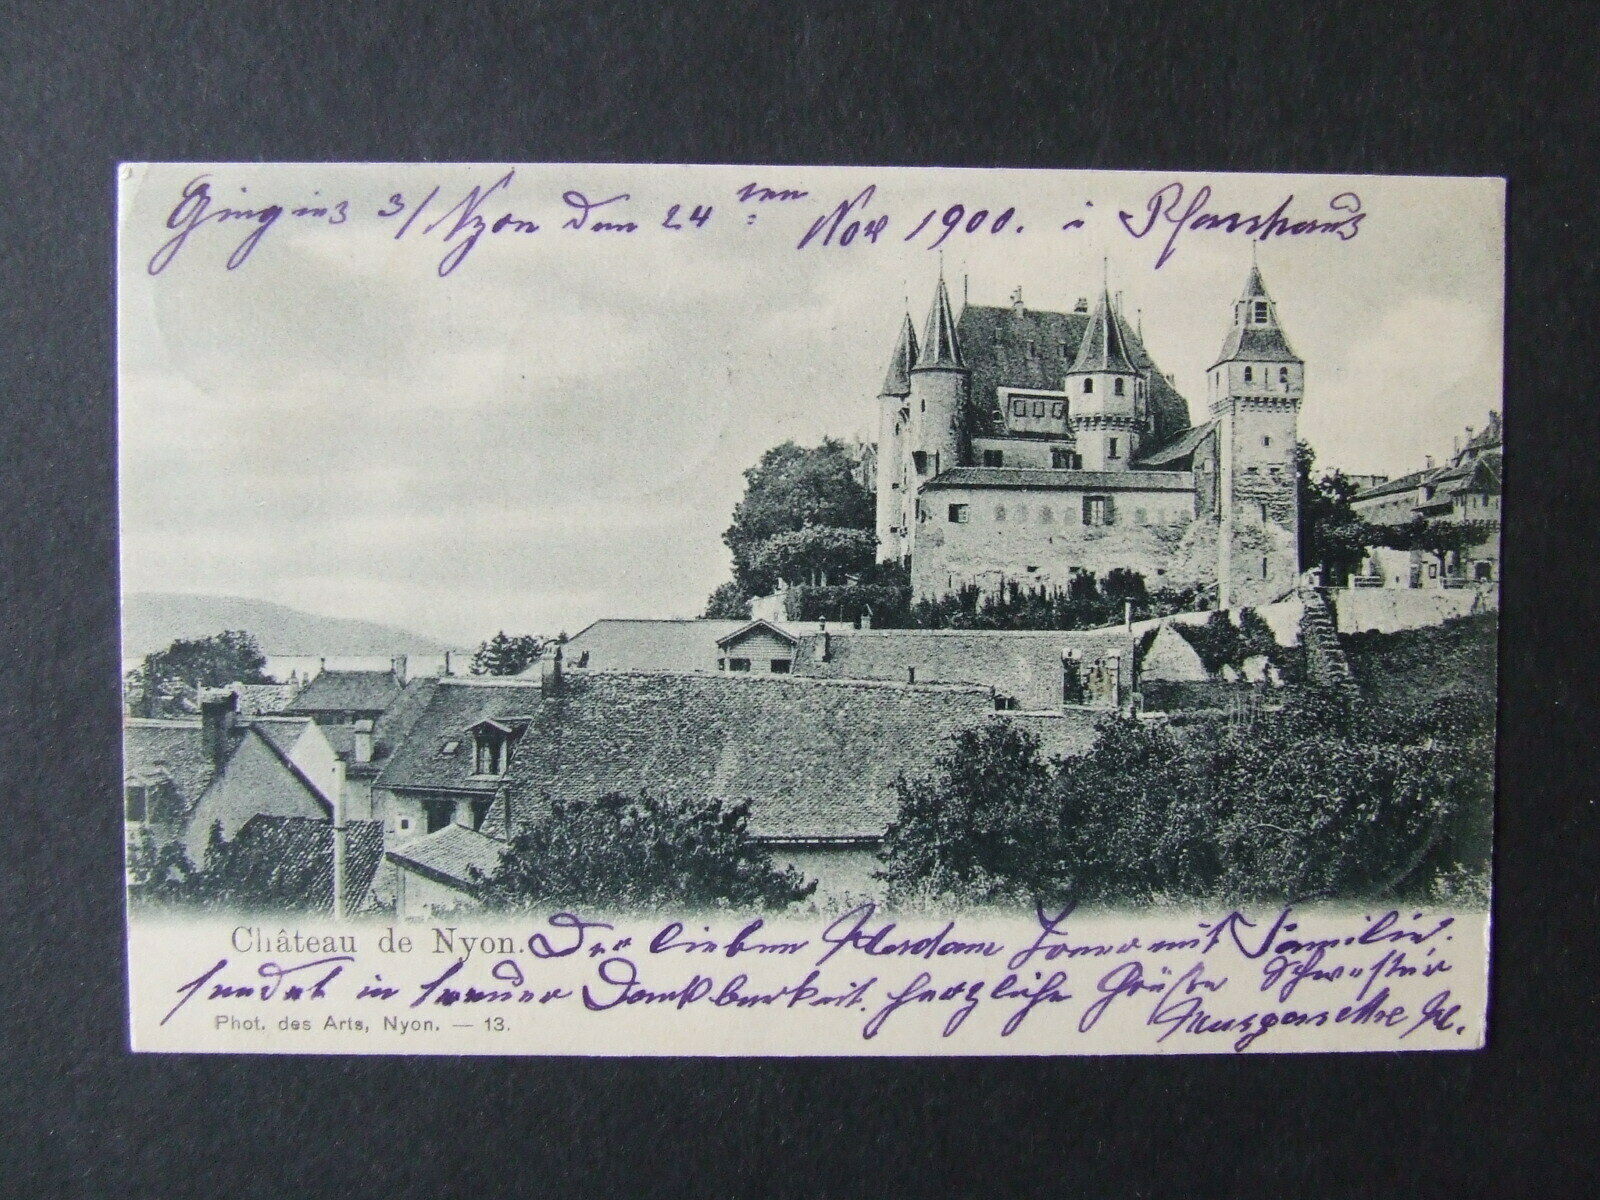 Gingins 3/ Nyon den 24ten Nov 1900. i Pfarrhaus
Château de Nyon. Der lieben Madam mit Familie.
sendet in treuer Dankbarkeit. herzliche Grüße Schwester
Phot. des Arts, Nyon. — 13.